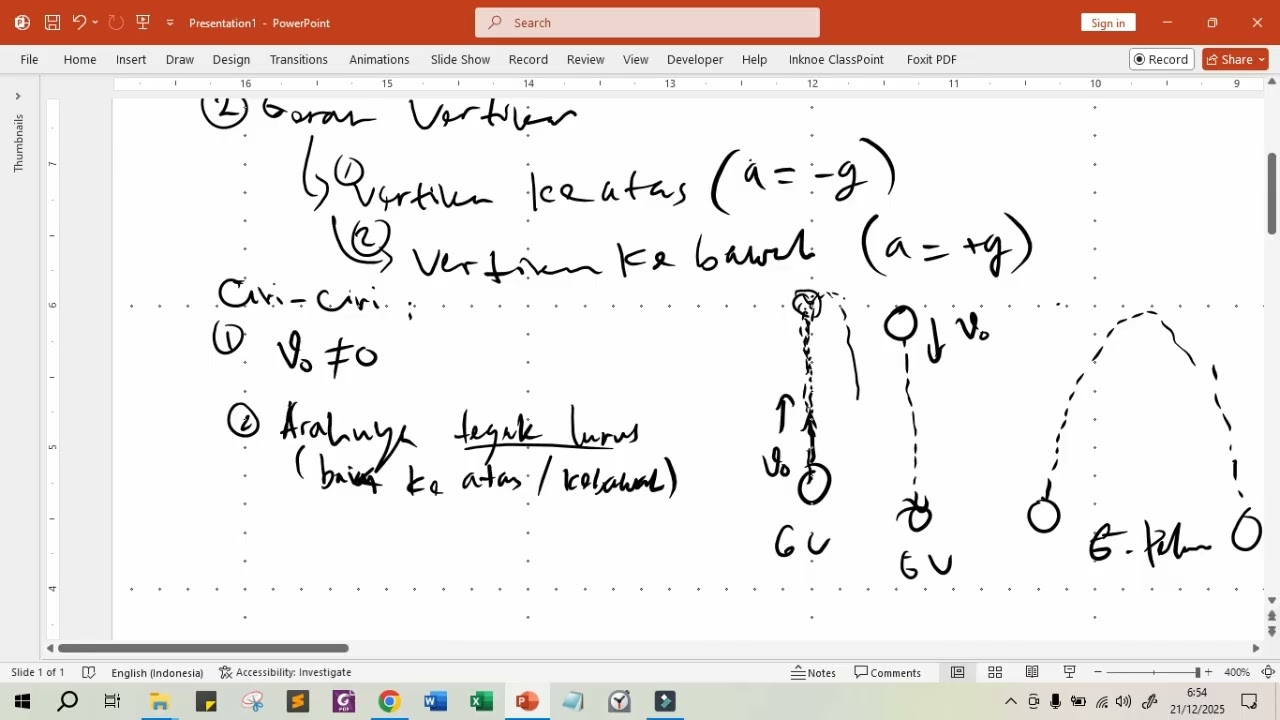 Presentation1 - PowerPoint
Search
Sign in
File Home Insert Draw Design Transitions Animations Slide Show Record Review View Developer Help Inknoe ClassPoint Foxit PDF
Record Share
15 14 13 12 11 10 9
16
Thumbnails
7
6
5
4
② Gerak Vertikal
① Vertikal ke atas (a = -g)
② Vertikal ke bawah (a = +g)
Ciri-ciri :
① V₀ ≠ 0
② Arahnya tegak lurus
(baik ke atas / kebawah)
V₀
V₀
GV
GV
Slide 1 of 1 English (Indonesia) Accessibility: Investigate Notes Comments 400%
6:54
21/12/2025